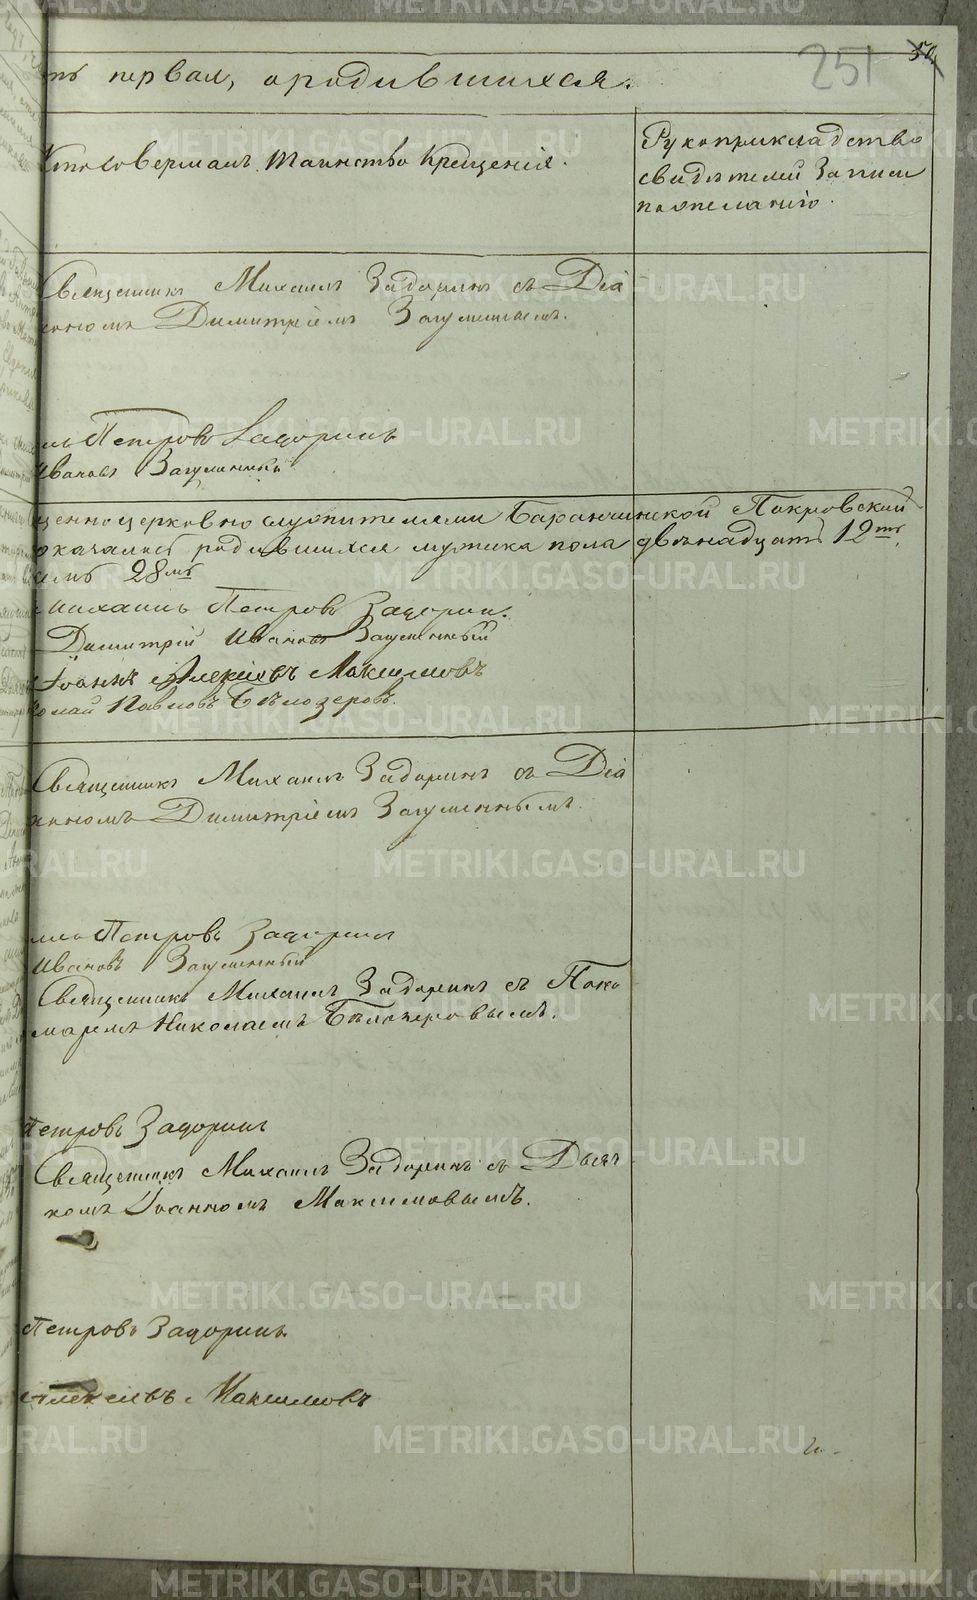 251
ть первая, о родившихся.
Кто совершалъ таинство крещенія.
Рукоприкладство
свидѣтелей записи
по желанію.
Священникъ Михаилъ Задоринъ съ Діа
кономъ Димитріемъ Загуменнымъ.
лъ Петровъ Задоринъ
Ивановъ Загуменный
щенноцерковнослужителями Баранчинской Покровской
оказалось родившихся мужска пола двѣнадцать 12ть,
28мь
Михаилъ Петровъ Задоринъ.
Димитрій Ивановъ Загуменный
Іоаннъ Алексѣевъ Максимовъ
колай Павловъ Бѣлозеровъ.
Священникъ Михаилъ Задоринъ съ Діа
кономъ Димитріемъ Загуменнымъ.
илъ Петровъ Задоринъ
Ивановъ Загуменный
Священникъ Михаилъ Задоринъ съ Поно
маремъ Николаемъ Бѣлозеровымъ.
Петровъ Задоринъ
Священникъ Михаилъ Задоринъ съ Дьяч
комъ Іоанномъ Максимовымъ.
Петровъ Задоринъ
Алексѣевъ Максимовъ
METRIKI.GASO-URAL.RU